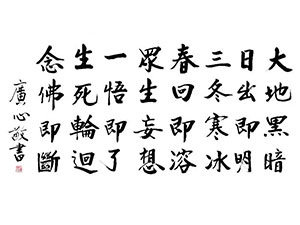 大地黑暗
日出即明
三冬寒冰
春回即溶
眾生妄想
一悟即了
生死輪迴
念佛即斷
廣心敬書